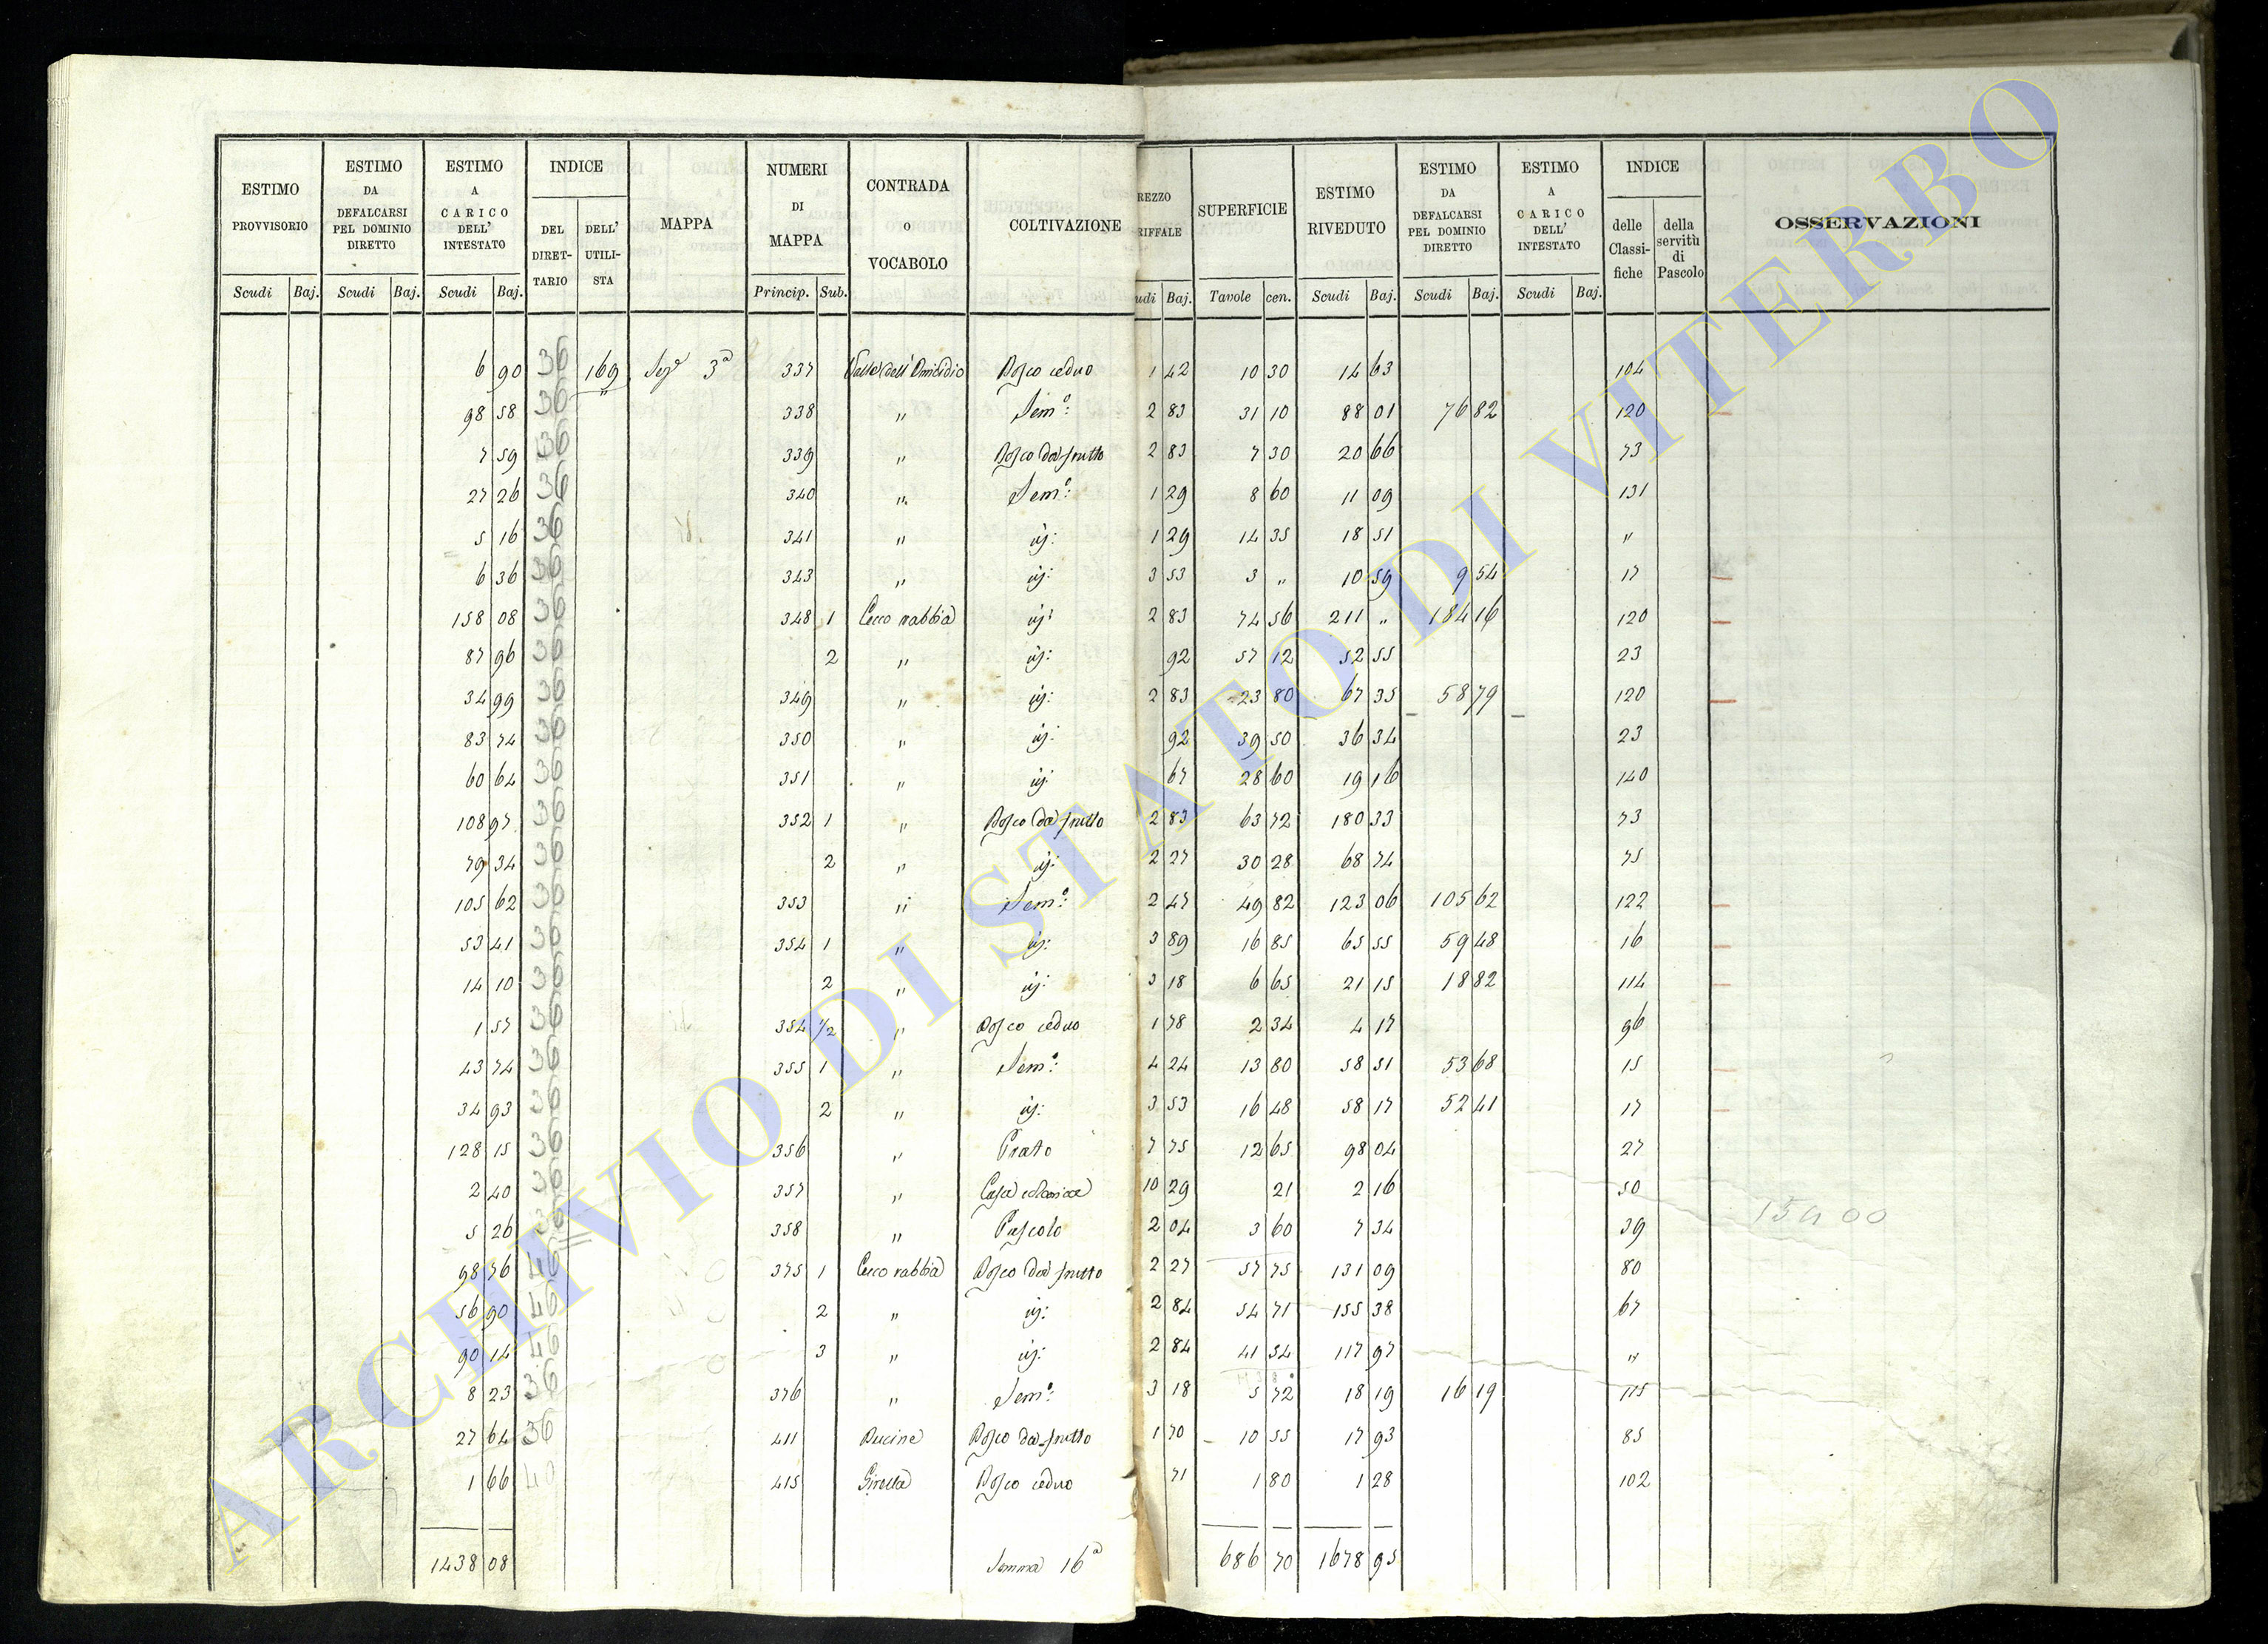 ESTIMO PROVVISORIO | ESTIMO DA DEFALCARSI PEL DOMINIO DIRETTO | ESTIMO A CARICO DELL' INTESTATO | INDICE DEL DIRETTARIO | DELL' UTILISTA | MAPPA | NUMERI DI MAPPA | CONTRADA O VOCABOLO | COLTIVAZIONE | REZZO RIFFALE | SUPERFICIE | ESTIMO RIVEDUTO | ESTIMO DA DEFALCARSI PEL DOMINIO DIRETTO | ESTIMO A CARICO DELL' INTESTATO | INDICE delle Classifiche | della servitù di Pascolo | OSSERVAZIONI
Scudi Baj. | Scudi Baj. | Scudi Baj. | Princip. Sub. | udi Baj. | Tavole cen. | Scudi Baj. | Scudi Baj. | Scudi Baj.
6 90 36 169 Sez 3ª 337 Valle dell'Omicidio Bosco ceduo 1 42 10 30 14 63 104
98 58 36 " 338 " Semº: 2 83 31 10 88 01 76 82 120
7 59 36 339 " Bosco da frutto 2 83 7 30 20 66 73
27 26 36 340 " Semº: 1 29 8 60 11 09 131
5 16 36 341 " id: 1 29 14 35 18 51 "
6 36 36 343 " id: 3 53 3 " 10 59 9 54 17
158 08 36 348 1 Cecco rabbia id: 2 83 74 56 211 " 184 16 120
87 96 36 2 " id: 92 57 12 52 55 23
34 99 36 349 " id: 2 83 23 80 67 35 58 79 120
83 74 36 350 " id: 92 39 50 36 34 23
60 64 36 351 " id: 67 28 60 19 16 140
108 97 36 352 1 " Bosco da frutto 2 83 63 72 180 33 73
79 34 36 2 " id: 2 27 30 28 68 74 75
105 62 36 353 " Semº: 2 47 49 82 123 06 105 62 122
53 41 36 354 1 " id: 3 89 16 85 65 55 59 48 16
14 10 36 2 " id: 3 18 6 65 21 15 18 82 114
1 57 36 354 1/2 " Bosco ceduo 1 78 2 34 4 17 96
43 74 36 355 1 " Semº: 4 24 13 80 58 51 53 68 15
34 93 36 2 " id: 3 53 16 48 58 17 52 41 17
128 15 36 356 " Prato 7 75 12 65 98 04 27
2 40 36 357 " Casa colonica 10 29 21 2 16 50
5 26 36 358 " Pascolo 2 04 3 60 7 34 39
98 76 46 375 1 Cecco rabbia Bosco da frutto 2 27 57 75 131 09 80
56 90 46 2 " id: 2 84 54 71 155 38 67
90 14 46 3 " id: 2 84 41 54 117 97 "
8 23 36 376 " Semº: 3 18 5 72 18 19 16 19 115
27 64 36 411 Bucine Bosco da frutto 1 70 10 55 17 93 85
1 66 40 415 Girella Bosco ceduo 71 1 80 1 28 102
1438 08 Somma 16ª 686 70 1678 95
ARCHIVIO DI STATO DI VITERBO